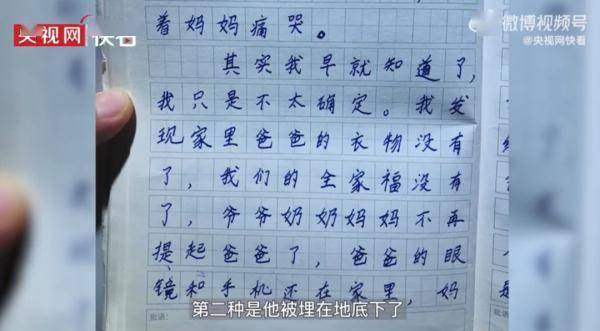 央视网快看
微博视频号
@央视网快看
着妈妈痛哭。
其实我早就知道了,
我只是不太确定。我发
现家里爸爸的衣物没有
了,我们的全家福没有
了,爷爷奶奶妈妈不再
提起爸爸了,爸爸的眼
镜和手机还在家里,妈
第二种是他被埋在地底下了
批语:
批语: